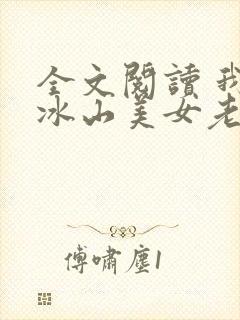 全文閱讀 我
冰山美女老
傅嘯塵1